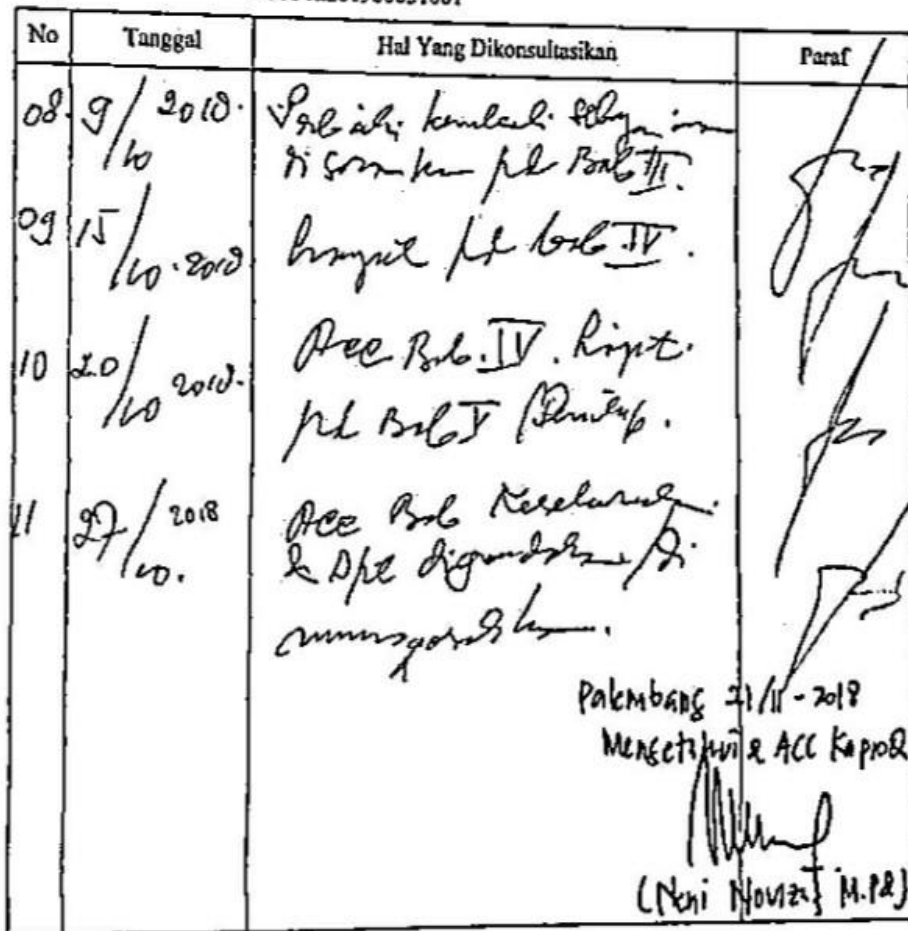 No Tanggal Hal Yang Dikonsultasikan Paraf
08. 9/10 2018. Perbaiki kembali
pd Bab III.
09 15/10.2018 pd bab IV.
10 20/10 2018. Acc Bab. IV.
pd Bab V / Penutup.
11 27/10. 2018 Acc Bab Keseluruhan
& dpt digandakan / di
munaqosahkan.
Palembang 21/11-2018
Mengetahui & ACC Kaprodi
(Neni Noviza, M.Pd)